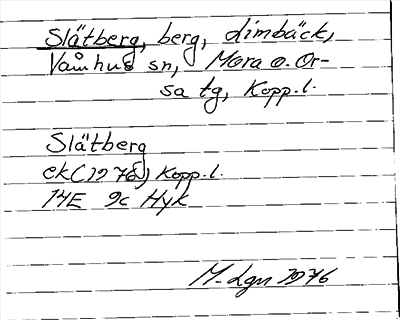 Slätberg, berg, Limbäck,
Våmhus sn, Mora o. Or-
sa tg, Kopp.l.
Slätberg
ek (1978) Kopp.l.
14E 9c Hyk
M. Lgn 1976